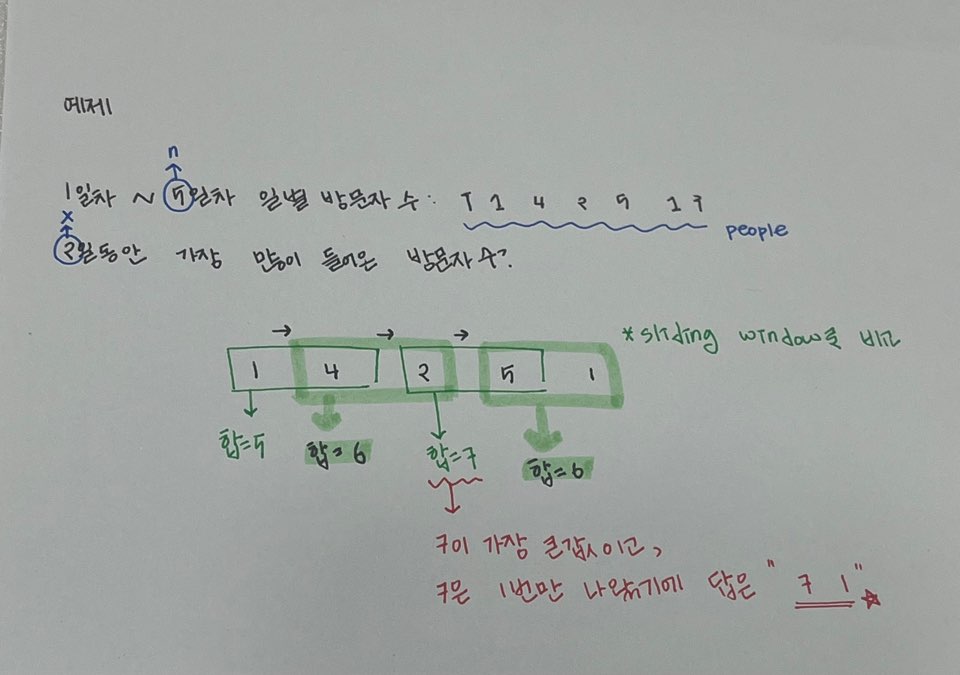 예제
n
1일차 ~ 5일차 일별 방문자 수: [ 1 4 2 5 1 ]
people
x
2일동안 가장 많이 들어온 방문자 수?
*sliding window로 비교
1 4 2 5 1
합=5 합=6 합=7 합=6
7이 가장 큰값이고,
7은 1번만 나왔기에 답은 " 7 1 "